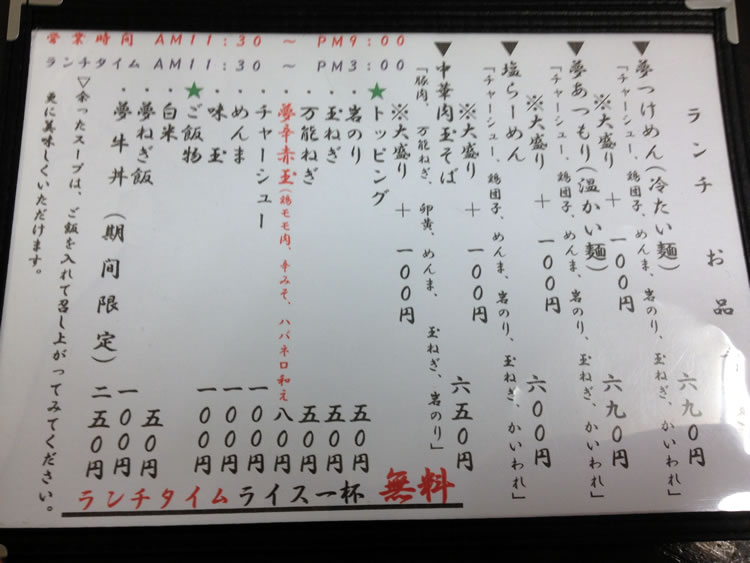 ランチ お品
▼夢つけめん(冷たい麺) 六九〇円
「チャーシュー、鶏団子、めんま、岩のり、玉ねぎ、かいわれ」
※大盛り + 一〇〇円
▼夢あつもり(温かい麺) 六九〇円
「チャーシュー、鶏団子、めんま、岩のり、玉ねぎ、かいわれ」
※大盛り + 一〇〇円
▼塩らーめん 六〇〇円
「チャーシュー、鶏団子、めんま、岩のり、玉ねぎ、かいわれ」
※大盛り + 一〇〇円
▼中華肉玉そば 六五〇円
「豚肉、万能ねぎ、卵黄、めんま、玉ねぎ、岩のり」
※大盛り + 一〇〇円
★トッピング
・岩のり 五〇円
・玉ねぎ 五〇円
・万能ねぎ 五〇円
・夢辛赤玉(鶏モモ肉、辛みそ、ハバネロ和え 八〇円
・チャーシュー 一〇〇円
・めんま 一〇〇円
・味玉 一〇〇円
★ご飯物
・白米 五〇円
・夢ねぎ飯 一〇〇円
・夢牛丼(期間限定) 二五〇円
▽余ったスープは、ご飯を入れて召し上がってみてください。
更に美味しくいただけます。
営業時間 AM11:30 ～ PM9:00
ランチタイム AM11:30 ～ PM3:00
ランチタイムライス一杯 無料